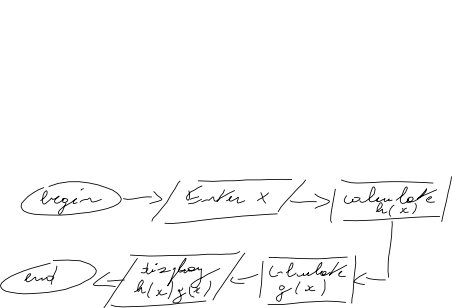 begin
Enter x
calculate
h(x)
calculate
g(x)
display
h(x) g(x)
end